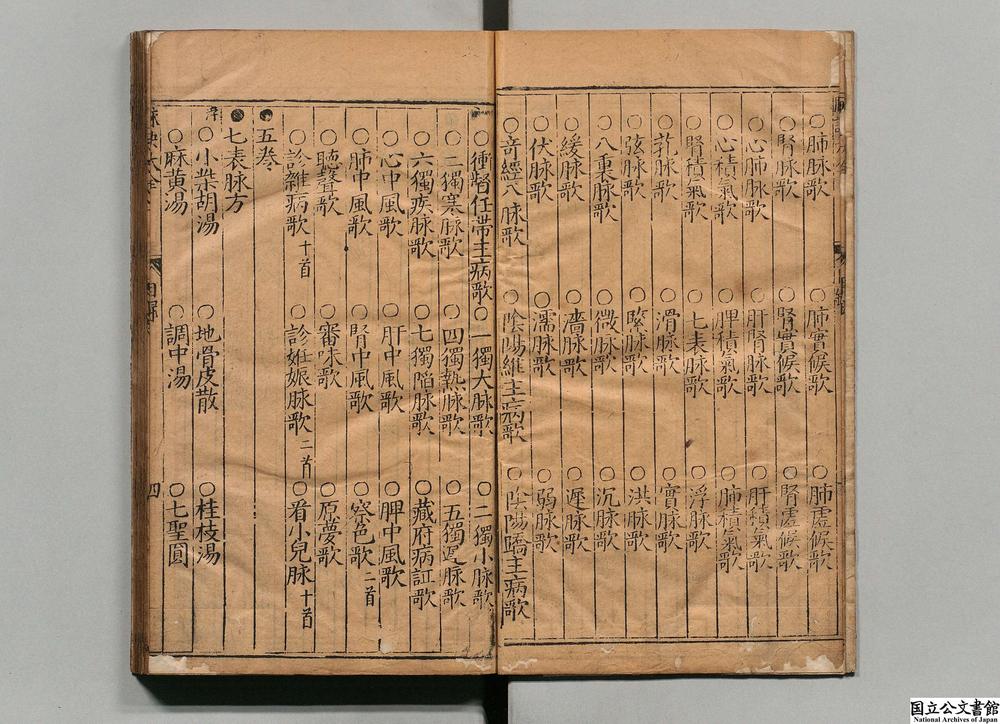 ○肺脉歌 ○肺實候歌 ○肺虛候歌
○腎脉歌 ○腎實候歌 ○腎虛候歌
○心肺脉歌 ○肝腎脉歌 ○肝積氣歌
○心積氣歌 ○脾積氣歌 ○肺積氣歌
○腎積氣歌 ○七表脉歌 ○浮脉歌
○芤脉歌 ○滑脉歌 ○實脉歌
○弦脉歌 ○緊脉歌 ○洪脉歌
○八裏脉歌 ○微脉歌 ○沉脉歌
○緩脉歌 ○濇脉歌 ○遲脉歌
○伏脉歌 ○濡脉歌 ○弱脉歌
○竒經八脉歌 ○陰陽維主病歌 ○陰陽蹻主病歌
○衝督任帶主病歌 ○一獨大脉歌 ○二獨小脉歌
○二獨寒脉歌 ○四獨熱脉歌 ○五獨遲脉歌
○六獨疾脉歌 ○七獨陷脉歌 ○藏府病訌歌
○心中風歌 ○肝中風歌 ○脾中風歌
○肺中風歌 ○腎中風歌 ○察色歌二首
○聽聲歌 ○審味歌 ○原夢歌
○診雜病歌十首 ○診妊娠脉歌二首 ○看小兒脉十首
五卷
七表脉方
○小柴胡湯 ○地骨皮散 ○桂枝湯
○麻黃湯 ○調中湯 ○七聖圓
脉訣大全
目錄
四
国立公文書館
National Archives of Japan